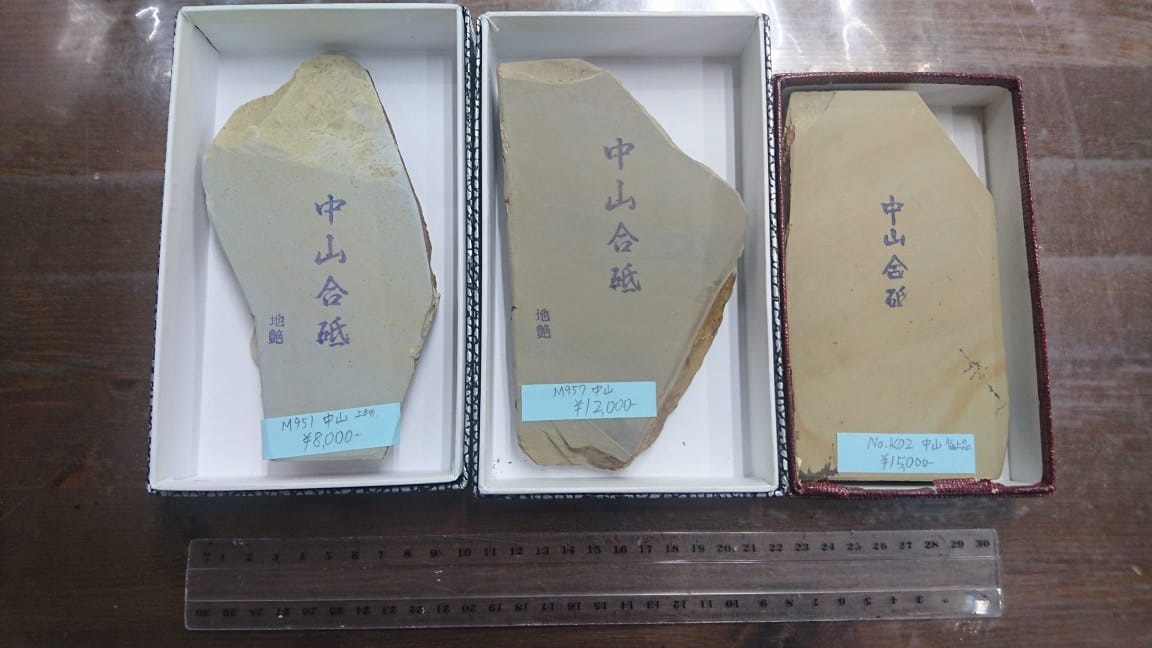 中山合砥
地艶
M951 中山
¥8,000-
中山合砥
地艶
M957 中山
¥12,000-
中山合砥
No.K02 中山 極上品
¥15,000-
1 2 3 4 5 6 7 8 9 10 11 12 13 14 15 16 17 18 19 20 21 22 23 24 25 26 27 28 29 30